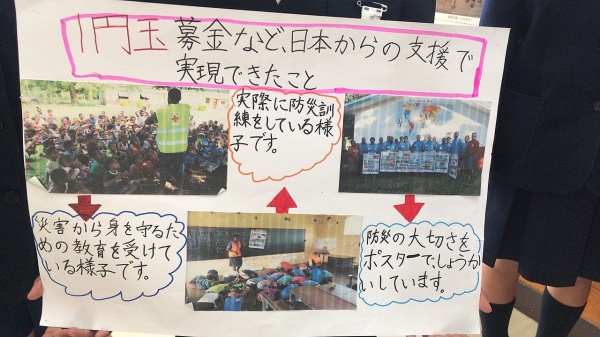 1円玉募金など、日本からの支援で
実現できたこと
実際に防災訓
練をしている様
子です。
災害から身を守るた
めの教育を受けて
いる様子です。
防災の大切さを
ポスターでしょうか
いしています。